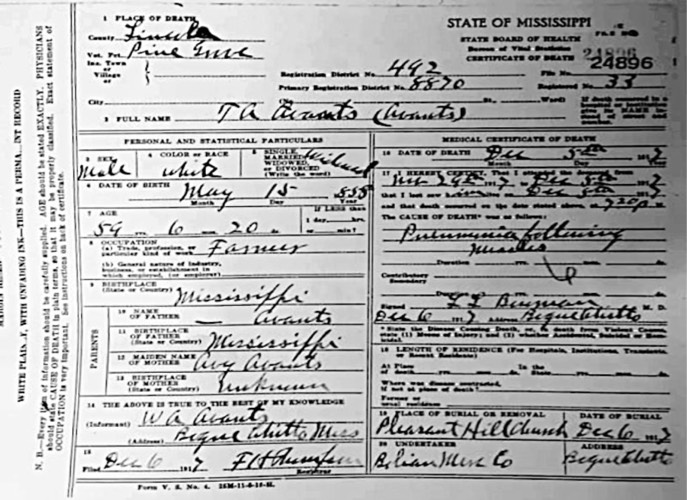 WRITE PLAINLY, WITH UNFADING INK—THIS IS A PERMANENT RECORD
N. B.—Every item of information should be carefully supplied. AGE should be stated EXACTLY. PHYSICIANS
should state CAUSE OF DEATH in plain terms, so that it may be properly classified. Exact statement of
OCCUPATION is very important. See instructions on back of certificate.
1 PLACE OF DEATH
County Lincoln
Vot. Pct. Pine Grove
Inc. Town
or
Village
or
City
STATE OF MISSISSIPPI
STATE BOARD OF HEALTH
Bureau of Vital Statistics
CERTIFICATE OF DEATH
24896
24896
Registration District No. 492
File No.
Primary Registration District No. 8870
Registered No. 33
St.
Ward)
2 FULL NAME T A Avants (Avants)
PERSONAL AND STATISTICAL PARTICULARS
3 SEX
Male
4 COLOR or RACE
white
5 SINGLE,
MARRIED,
WIDOWED,
or DIVORCED
(Write the word)
6 DATE OF BIRTH
May 15
Month Day Year
7 AGE
59 yrs. 6 mo. 20 ds.
If LESS than
1 day, hrs.
or min.?
8 OCCUPATION
(a) Trade, profession, or
particular kind of work Farmer
(b) General nature of industry,
business, or establishment in
which employed, (or employer)
9 BIRTHPLACE
(State or Country) Mississippi
PARENTS
10 NAME OF
FATHER Avants
11 BIRTHPLACE
OF FATHER
(State or Country) Mississippi
12 MAIDEN NAME
OF MOTHER Avants
13 BIRTHPLACE
OF MOTHER
(State or Country) Unknown
14 THE ABOVE IS TRUE TO THE BEST OF MY KNOWLEDGE
(Informant) W A Avants
(Address) Bogue Chitto Miss
15
Filed Dec 6 1917
Registrar
Form V. S. No. 4.
MEDICAL CERTIFICATE OF DEATH
16 DATE OF DEATH Dec 5th 1917
Month Day
17 I HEREBY CERTIFY, That I attended the deceased from
Nov 29th 1917 Dec 5th 1917
that I last saw Dec 5th 1917
and that death occurred on the date stated above at 720 P M.
The CAUSE OF DEATH* was as follows:
Pneumonia following
Measles
Duration
Contributory
Secondary
Duration
Signed M. D.
Dec 6 1917 Bogue Chitto
* State the Disease Causing Death, or, in death from Violent Causes,
state (1) Means of Injury; and (2) whether Accidental, Suicidal or Homicidal.
18 LENGTH OF RESIDENCE (For Hospitals, Institutions, Transients,
or Recent Residents)
At Place In the
Where was disease contracted,
if not at place of death?
Former or
usual residence
19 PLACE OF BURIAL OR REMOVAL
Pleasant Hill Church
DATE OF BURIAL
Dec 6 1917
20 UNDERTAKER
ADDRESS
Bogue Chitto